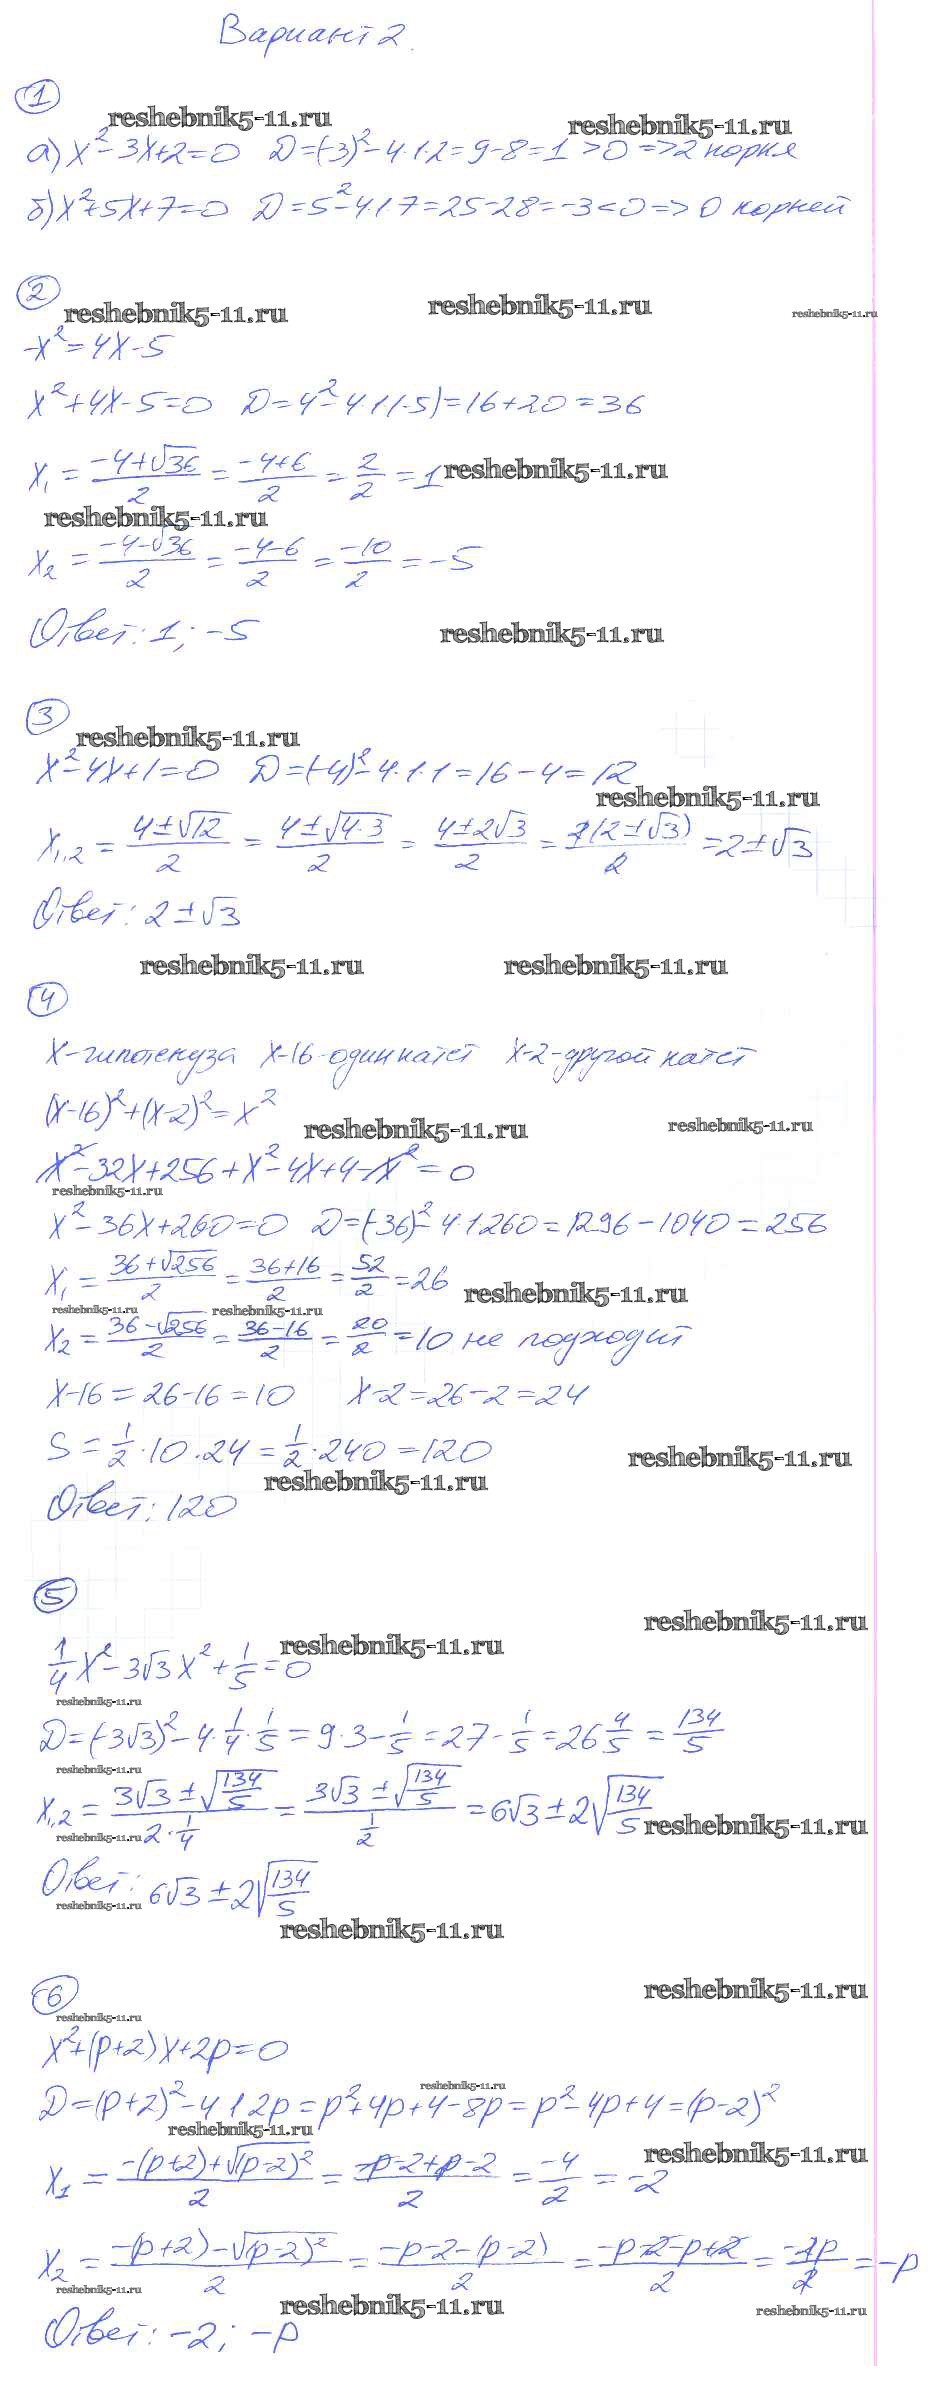 Вариант 2.
1
reshebnik5-11.ru reshebnik5-11.ru
а) x²-3x+2=0 D=(-3)²-4·1·2=9-8=1>0=>2 корня
б) x²+5x+7=0 D=5²-4·1·7=25-28=-3<0=>0 корней
2
reshebnik5-11.ru reshebnik5-11.ru reshebnik5-11.ru
-x²=4x-5
x²+4x-5=0 D=4²-4·1·(-5)=16+20=36
x₁=(-4+√36)/2=(-4+6)/2=2/2=1 reshebnik5-11.ru
reshebnik5-11.ru
x₂=(-4-√36)/2=(-4-6)/2=-10/2=-5
Ответ: 1; -5 reshebnik5-11.ru
3
reshebnik5-11.ru
x²-4x+1=0 D=(-4)²-4·1·1=16-4=12
reshebnik5-11.ru
x₁,₂=(4±√12)/2=(4±√(4·3))/2=(4±2√3)/2=2(2±√3)/2=2±√3
Ответ: 2±√3
reshebnik5-11.ru reshebnik5-11.ru
4
x-гипотенуза x-16-один катет x-2-другой катет
(x-16)²+(x-2)²=x²
reshebnik5-11.ru reshebnik5-11.ru
x²-32x+256+x²-4x+4-x²=0
reshebnik5-11.ru
x²-36x+260=0 D=(-36)²-4·1·260=1296-1040=256
x₁=(36+√256)/2=(36+16)/2=52/2=26 reshebnik5-11.ru
reshebnik5-11.ru reshebnik5-11.ru
x₂=(36-√256)/2=(36-16)/2=20/2=10 не подходит
x-16=26-16=10 x-2=26-2=24
S=1/2·10·24=1/2·240=120 reshebnik5-11.ru
reshebnik5-11.ru
Ответ: 120
5
reshebnik5-11.ru
reshebnik5-11.ru
1/4x²-3√3x²+1/5=0
reshebnik5-11.ru
D=(-3√3)²-4·1/4·1/5=9·3-1/5=27-1/5=26 4/5=134/5
reshebnik5-11.ru
x₁,₂=(3√3±√(134/5))/(2·1/4)=(3√3±√(134/5))/(1/2)=6√3±2√(134/5)
reshebnik5-11.ru reshebnik5-11.ru
Ответ: 6√3±2√(134/5)
reshebnik5-11.ru
reshebnik5-11.ru
6
reshebnik5-11.ru
reshebnik5-11.ru
x²+(p+2)x+2p=0
reshebnik5-11.ru
D=(p+2)²-4·1·2p=p²+4p+4-8p=p²-4p+4=(p-2)²
reshebnik5-11.ru reshebnik5-11.ru
x₁=(-(p+2)+√(p-2)²)/2=(-p-2+p-2)/2=-4/2=-2
x₂=(-(p+2)-√(p-2)²)/2=(-p-2-(p-2))/2=(-p-2-p+2)/2=-2p/2=-p
reshebnik5-11.ru reshebnik5-11.ru reshebnik5-11.ru
Ответ: -2; -p